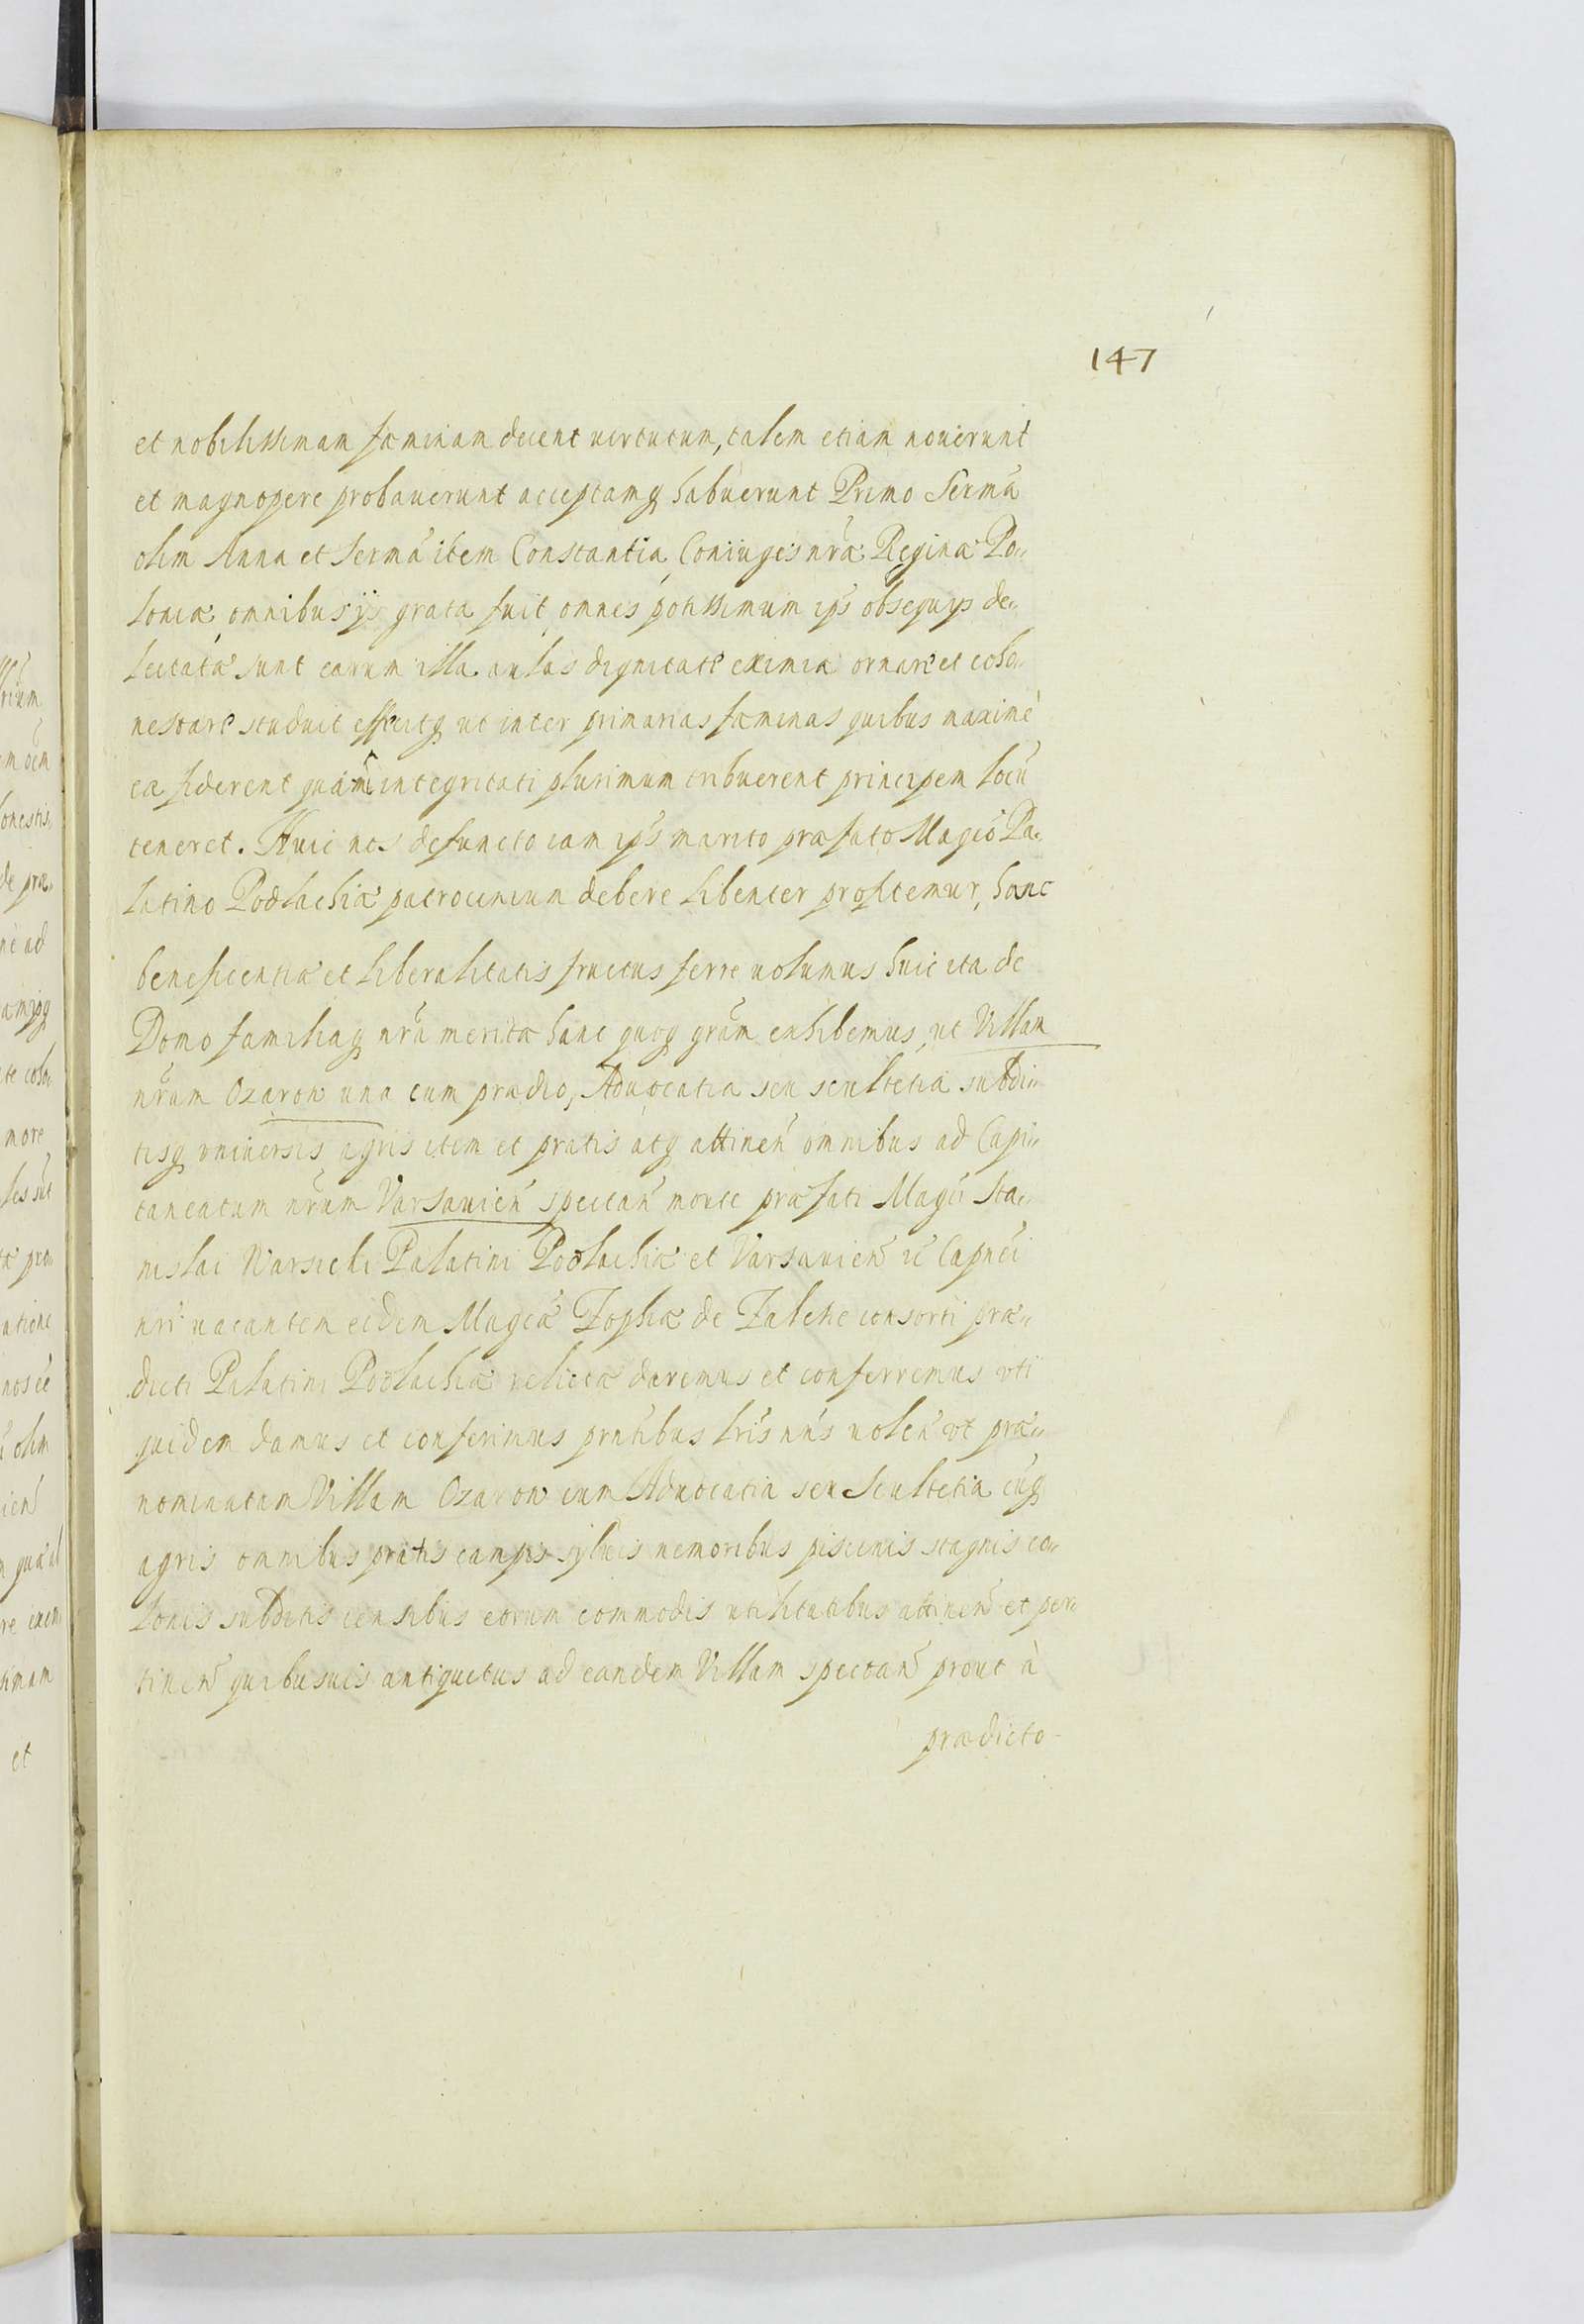 147
et nobilissimam fæminam decent uirtutum, talem etiam nouerunt
et magnopere probauerunt acceptamq habuerunt Primo Sermã
olim Anna et Sermã item Constantia Coniuges nr̃æ Reginæ Po„
loniæ, omnibus ijs grata fuit, omnes potissimum ip̃s obsequijs de„
lectatæ sunt earum illa aulas dignitate eximia ornare et coho„
nestare studuit effecitq ut inter primarias fæminas quibus maximè
ea fiderent quarũ integritati plurimum tribuerent principem locũ
teneret. Huic nos defuncto iam ip̃s marito præfato Mag̃co Pa„
latino Podlachiæ patrocinium debere libenter profitemur, hanc
beneficentiæ et liberalitatis fructus ferre uolumus huic ita de
Domo familiaq nr̃a meritæ hanc quoq gr̃am exhibemus, ut Villam
nr̃am Ozarow una cum prædio, Aduocatia seu scultetia subdi„
tisq vniuersis agris item et pratis atq attineñ omnibus ad Capi„
taneatum nr̃um Varsauieñ spectañ morte præfati Mag̃ci Sta„
nislai Warsicki Palatini Podlachiæ et Varsauieñ &c Capñei
nr̃i uacantem eidem Mag̃cæ Zophiæ de Zalcze consorti præ„
dicti Palatini Podlachiæ relictæ daremus et conferremus vti
quidem damus et conferimus prñtibus lr̃is nr̃is uoleñ vt præ„
nominatam Villam Ozarow cum Aduocatia seu Scultetia cũq
agris omnibus pratis campis syluis nemoribus piscinis stagnis co„
lonis subditis censibus eorum commodis utilitatibus attineñ et per„
tineñ quibusuis antiquitus ad eandem Villam spectañ prout à
prædicto